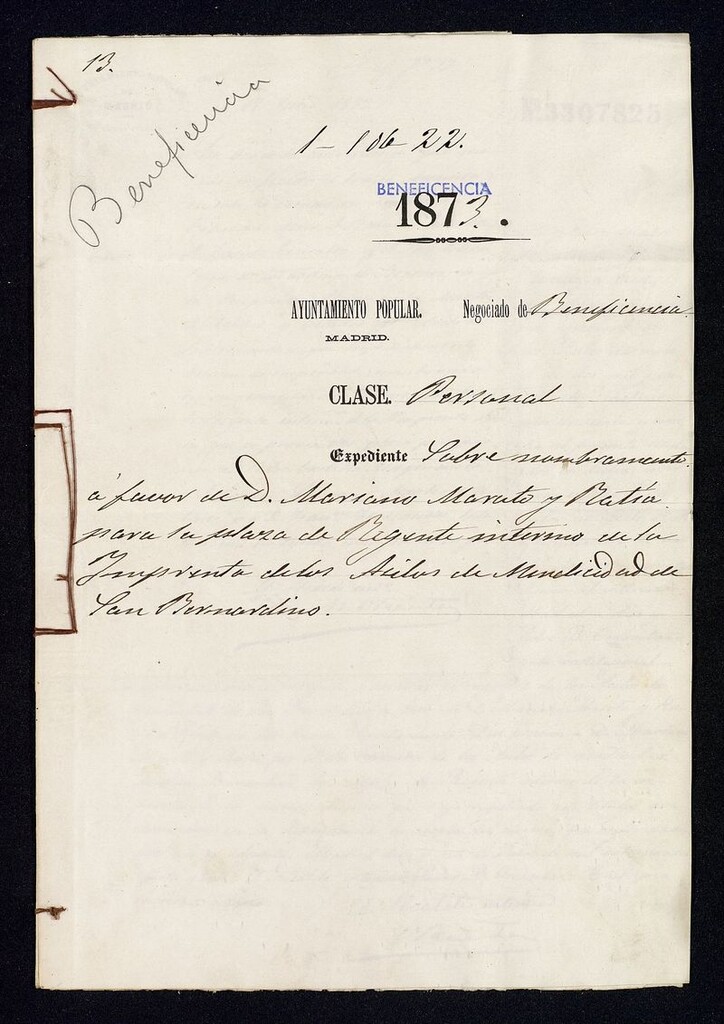 13.
Beneficencia
1-106-22.
BENEFICENCIA
1873.
AYUNTAMIENTO POPULAR. Negociado de Beneficencia.
MADRID.
CLASE. Personal
Expediente Sobre nombramiento
á favor de D. Mariano Marato y Ratía
para la plaza de Regente interino de la
Imprenta de los Asilos de Mendicidad de
San Bernardino.